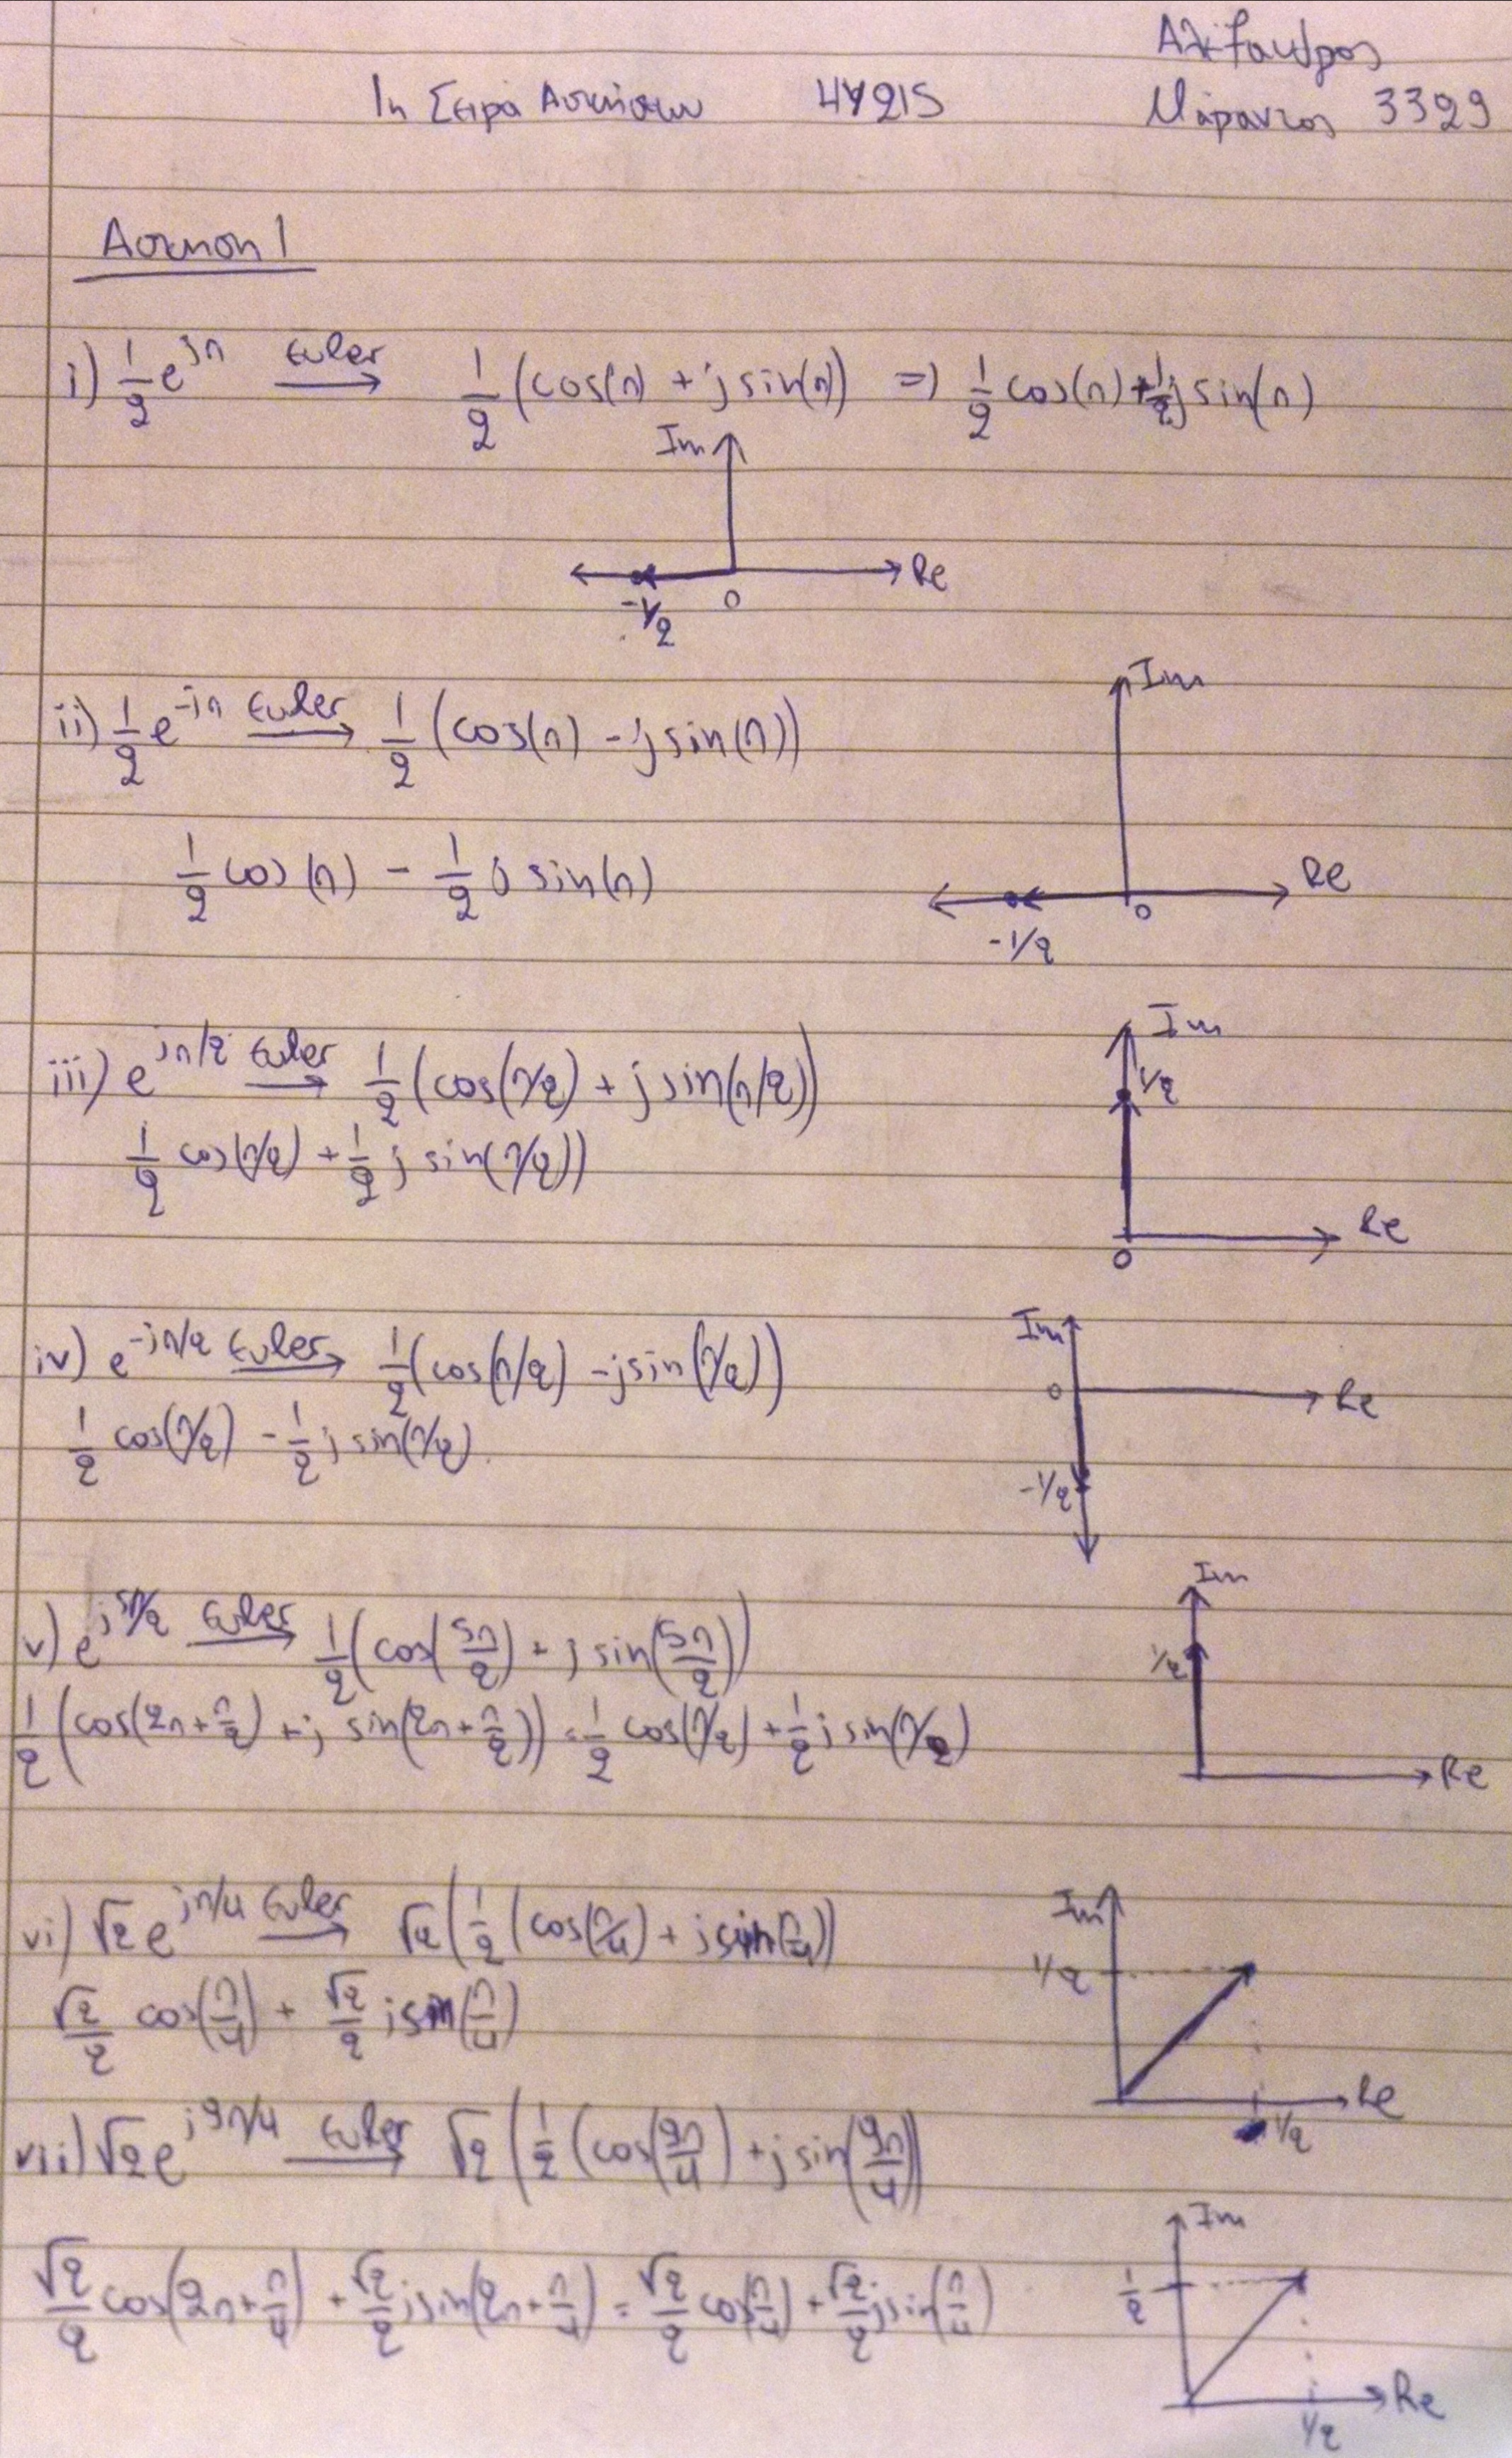 Αλέξανδρος
1η Σειρά Ασκήσεων ΗΥ215 Μάραντος 3329
Άσκηση 1
i) 1/2 e^{jπ} Euler → 1/2 (cos(π) + j sin(π)) => 1/2 cos(π) + 1/2 j sin(π)
Im
Re
-1/2 0
ii) 1/2 e^{-jπ} Euler → 1/2 (cos(π) - j sin(π))
Im
1/2 cos(π) - 1/2 j sin(π)
Re
0
-1/2
iii) e^{jπ/2} Euler → 1/2 (cos(π/2) + j sin(π/2))
Im
1/2
1/2 cos(π/2) + 1/2 j sin(π/2))
Re
0
iv) e^{-jπ/2} Euler → 1/2 (cos(π/2) - j sin(π/2))
Im
0 Re
1/2 cos(π/2) - 1/2 j sin(π/2)
-1/2
v) e^{j5π/2} Euler → 1/2 (cos(5π/2) + j sin(5π/2))
Im
1/2
1/2 (cos(2π + π/2) + j sin(2π + π/2)) = 1/2 cos(π/2) + 1/2 j sin(π/2)
Re
vi) √2 e^{jπ/4} Euler → √2 (1/2 (cos(π/4) + j sin(π/4))
Im
1/2
√2/2 cos(π/4) + √2/2 j sin(π/4)
Re
1/2
vii) √2 e^{j9π/4} Euler → √2 (1/2 (cos(9π/4) + j sin(9π/4))
Im
√2/2 cos(2π + π/4) + √2/2 j sin(2π + π/4) = √2/2 cos(π/4) + √2/2 j sin(π/4)
1/2
Re
1/2